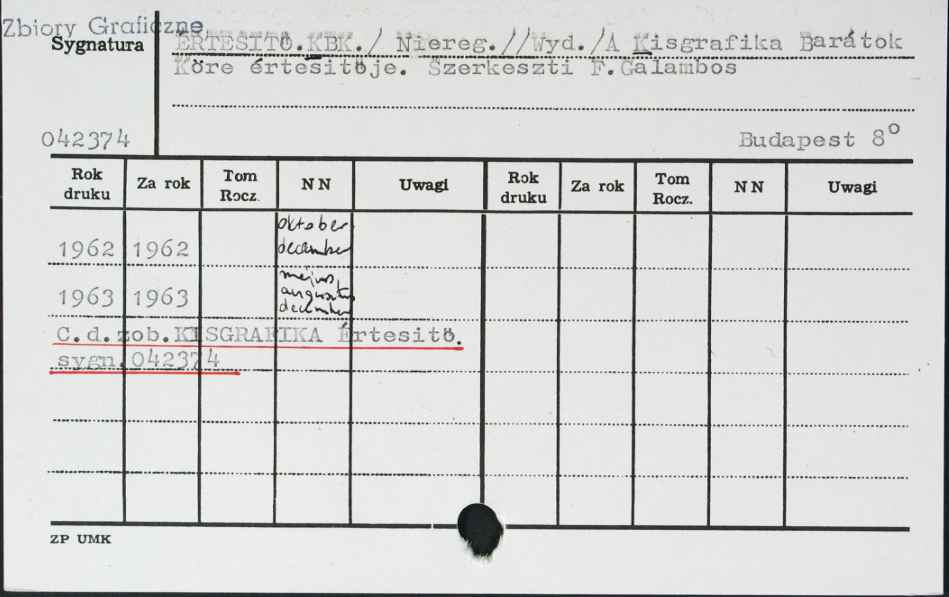 Zbiory Graficzne
Sygnatura
ÉRTESITŐ.KBK./ Niereg.//Wyd./A Kisgrafika Barátok
Köre értesitöje. Szerkeszti F.Galambos
042374
Budapest 8°
Rok druku Za rok Tom Rocz. NN Uwagi Rok druku Za rok Tom Rocz. NN Uwagi
oktober
1962 1962 december
majus
1963 1963 augusztus
december
C.d.zob.KISGRAFIKA Értesitö.
sygn.042374
ZP UMK